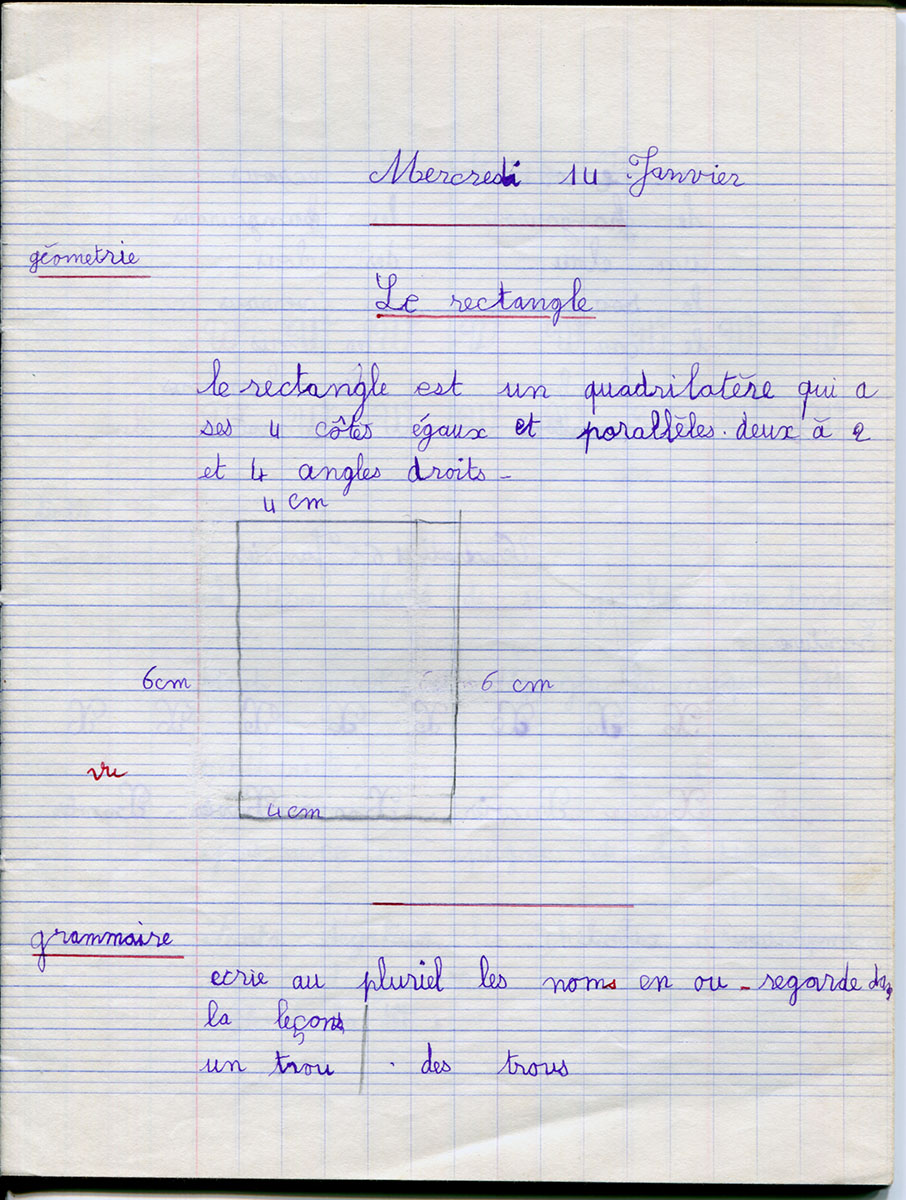 Mercredi 14 Janvier
géometrie
Le rectangle
le rectangle est un quadrilatère qui a
ses 4 côtés égaux et parallèles. deux à 2
et 4 angles droits -
4 cm
6cm
6 cm
vu
4cm
grammaire
ecrie au pluriel les noms en ou - regarde dans
la leçons
un trou . des trous